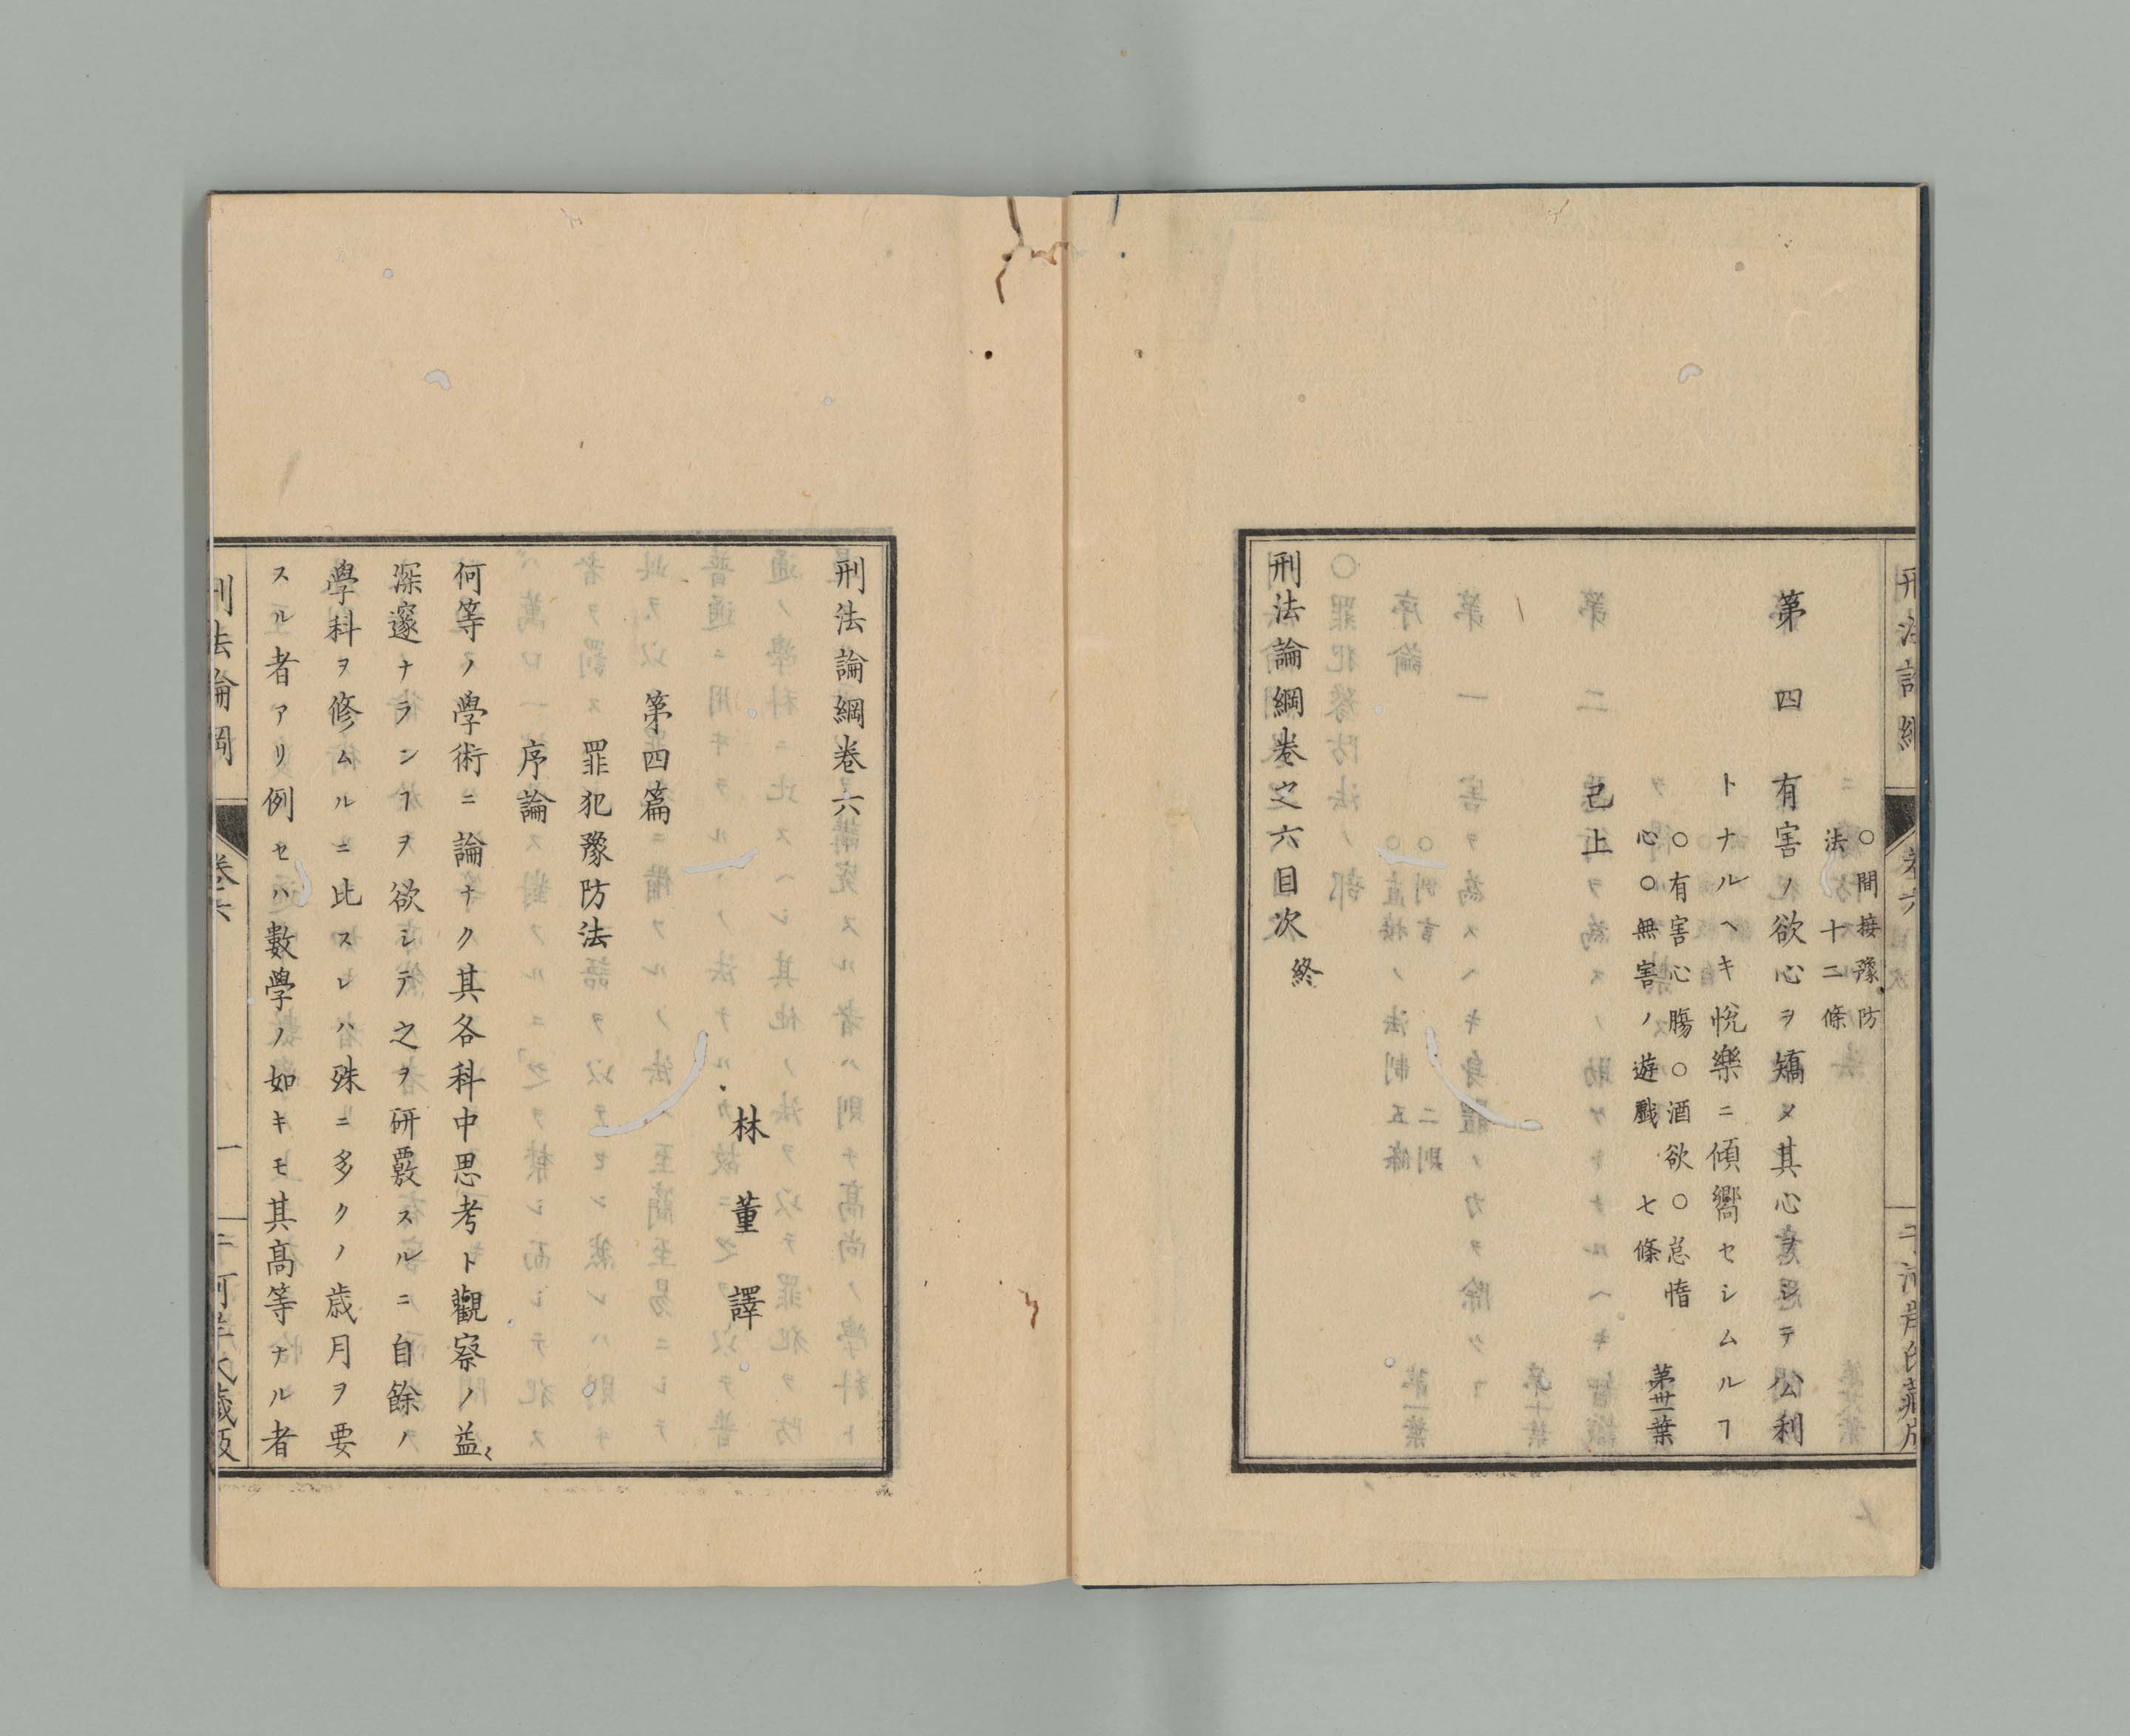 ○間接豫防
法十二條
第四 有害ノ欲心ヲ矯メ其心ヲシテ公利
トナルヘキ悦樂ニ傾嚮セシムルヿ
○有害心膓○酒欲○怠惰
心○無害ノ遊戲 七條
第卅一葉
已上
刑法論綱卷之六目次 終
刑法論綱卷六
林董譯
第四篇
罪犯豫防法
序論
何等ノ學術ニ論ナク其各科中思考ト觀察ノ益〻
深邃ナランヿヲ欲シテ之ヲ研覈スルニ自餘ノ
學科ヲ修ムルニ比スレハ殊ニ多クノ歳月ヲ要
スル者アリ例セハ數學ノ如キモ其髙等ナル者
刑法論綱
卷六
一